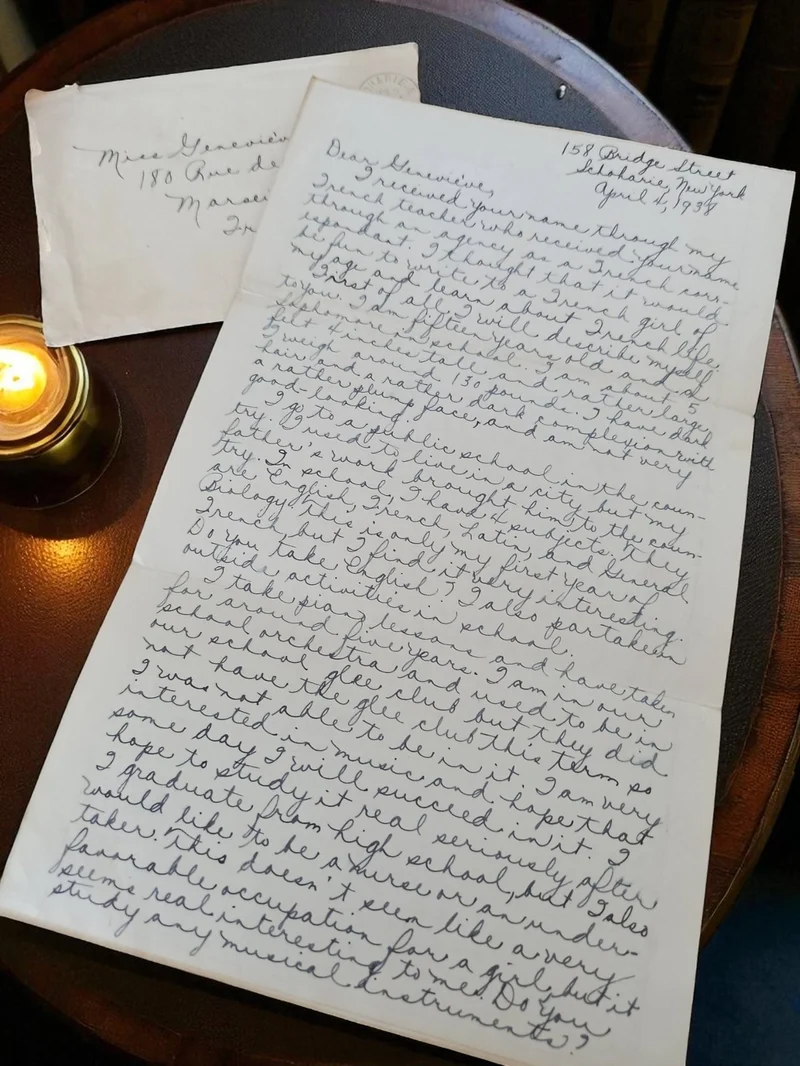 Miss Geneviev
180 Rue de
Marsei
Fr
158 Bridge Street
Schoharie, New York
April 4, 1938
Dear Geneviéve,
I received your name through my
French teacher who received your name
through an agency as a French corr-
espondant. I thought that it would
be fun to write to a French girl of
my age and learn about French life.
First of all, I will describe myself
to you. I am fifteen years old and a
sophomore in school. I am about 5
feet 4 inches tall and rather large,
I weigh around 130 pounds. I have dark
hair and a rather dark complexion with
a rather plump face, and am not very
good-looking.
I go to a public school in the coun-
try. I used to live in a city but my
father's work brought him to the coun-
try. In school, I have 4 subjects. They
are English, French, Latin, and General
Biology. This is only my first year of
French, but I find it very interesting.
Do you take English? I also partake in
outside activities in school.
I take piano lessons and have taken
for around five years. I am in our
school orchestra and used to be in
our school glee club but they did
not have the glee club this term so
I was not able to be in it. I am very
interested in music and hope that
some day I will succeed in it. I
hope to study it real seriously after
I graduate from high school, but I also
would like to be a nurse or an under-
taker. This doesn't seem like a very
favorable occupation for a girl, but it
seems real interesting to me. Do you
study any musical instruments?